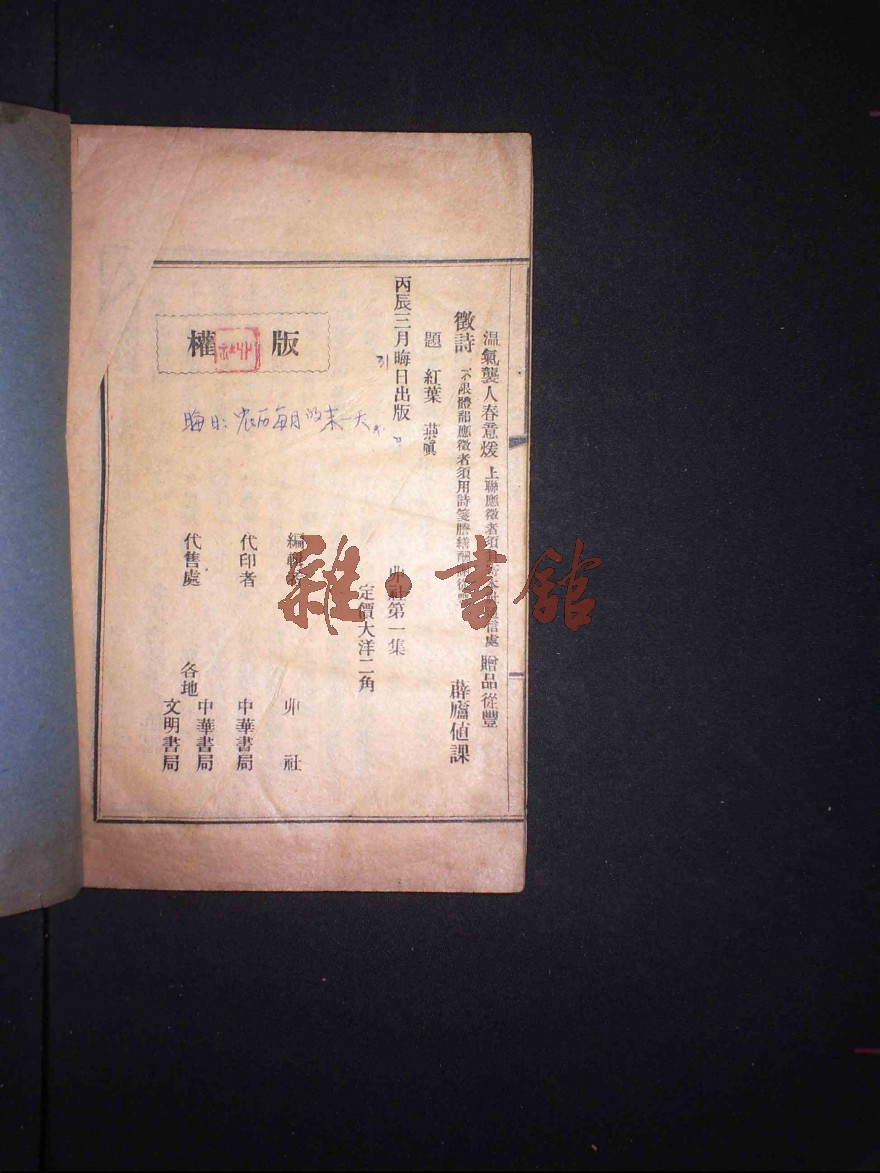 温氣襲人春意煖 上聯應徵者須 信處 贈品從豐
徵詩 不限體韻應徵者須用詩箋謄繕 薜廬值課
題 紅葉
丙辰三月晦日出版
卯社第一集
定價大洋二角
版權
晦日:农历每月的末一天
編輯者 卯社
代印者 中華書局
代售處 各地 中華書局
文明書局
雜·書館